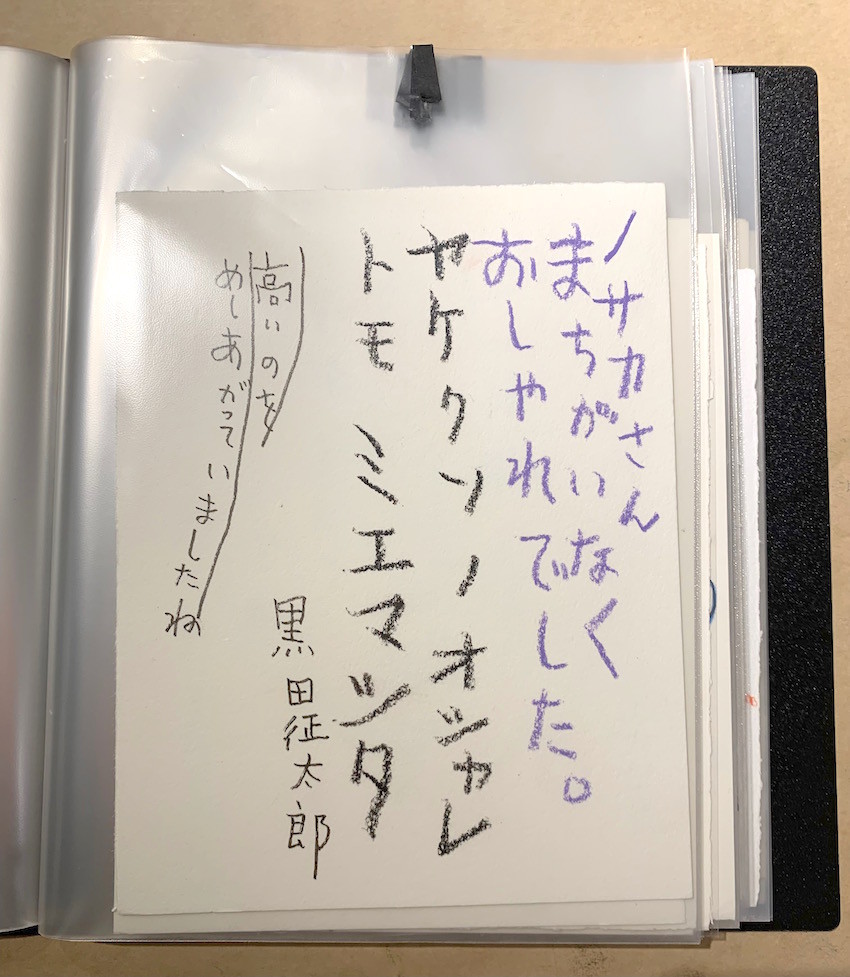 ノサカさん
まちがいなく
おしゃれでした。
ヤケクソノオシャレ
トモミエマシタ
黒田征太郎
高いのを
めしあがっていましたね